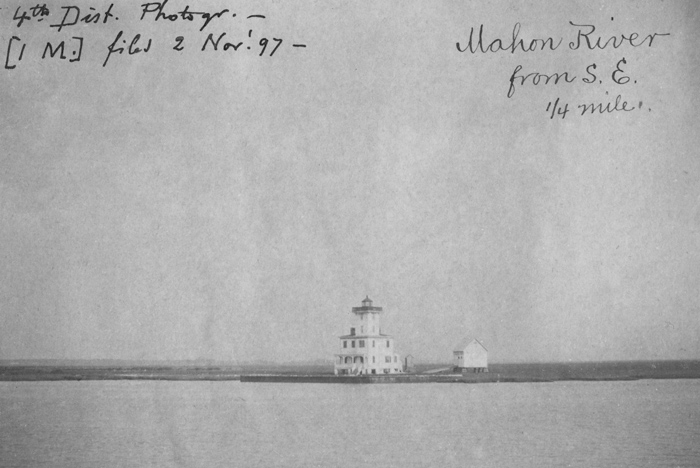 4th Dist. Photogr. —
[1 M.] filed 2 Nov! 97 —
Mahon River
from S. E.
1/4 mile.